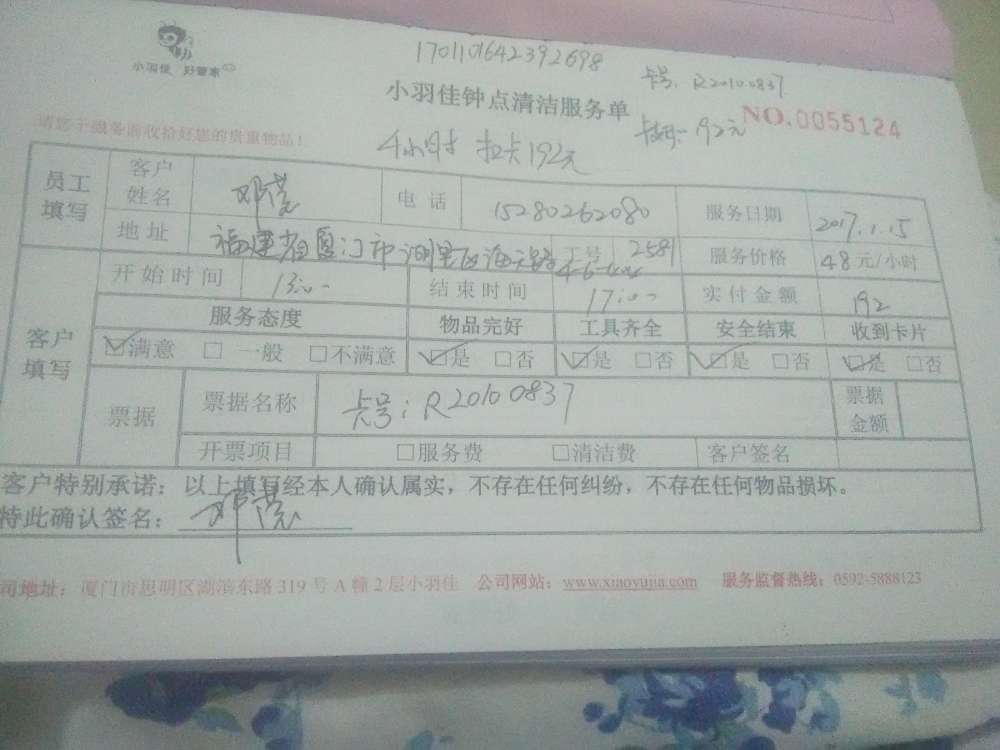 1701101642392698
小羽佳 好管家
卡号: R20100837
小羽佳钟点清洁服务单
192元
NO.0055124
请您于服务前收拾好您的贵重物品!
4小时 拉卡192元
员工填写 客户姓名 邓 电话 15280262080 服务日期 2017.1.15
地址 福建省厦门市湖里区海天路 工号 2581 服务价格 48元/小时
客户填写 开始时间 13:00- 结束时间 17:00- 实付金额 192
服务态度 物品完好 工具齐全 安全结束 收到卡片
☑满意 □一般 □不满意 ☑是 □否 ☑是 □否 ☑是 □否 ☑是 □否
票据 票据名称 卡号:R20100837 票据金额
开票项目 □服务费 □清洁费 客户签名
客户特别承诺:以上填写经本人确认属实,不存在任何纠纷,不存在任何物品损坏。
特此确认签名: 邓
司地址:厦门市思明区湖滨东路319号A幢2层小羽佳 公司网站:www.xiaoyujia.com 服务监督热线:0592-5888123